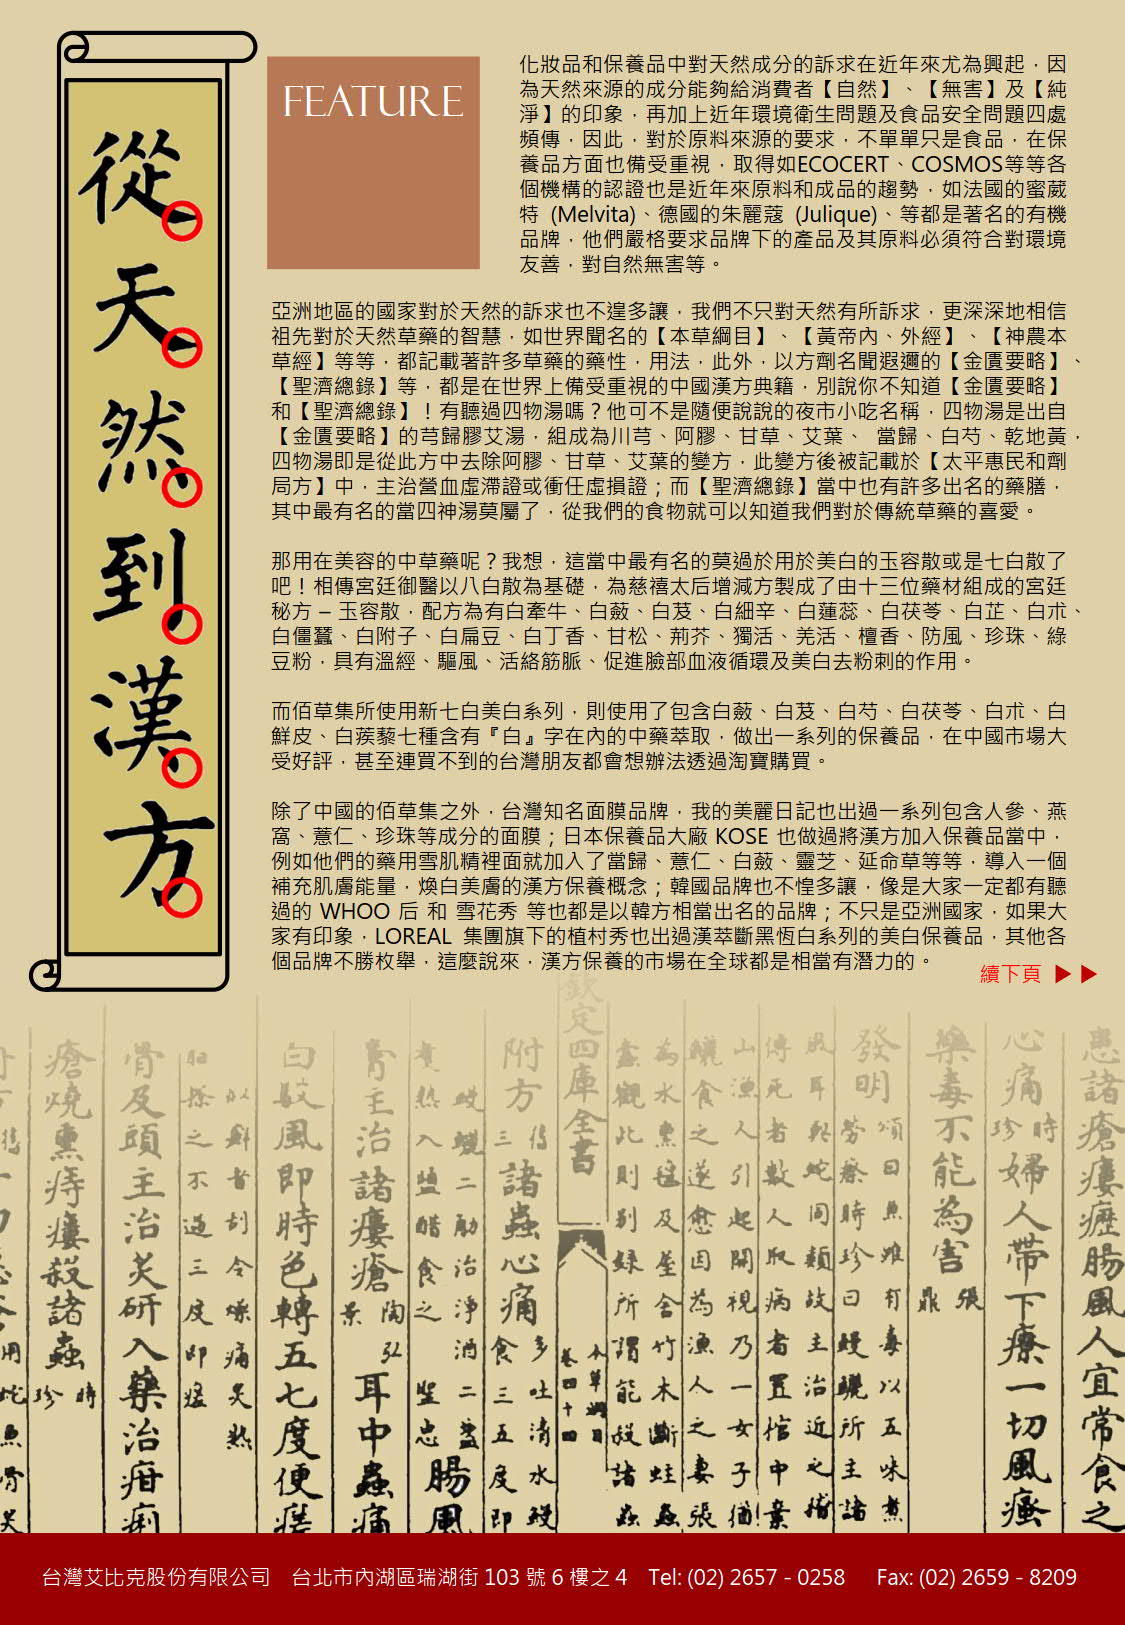 從天然到漢方
FEATURE
化妝品和保養品中對天然成分的訴求在近年來尤為興起，因
為天然來源的成分能夠給消費者【自然】、【無害】及【純
淨】的印象，再加上近年環境衛生問題及食品安全問題四處
頻傳，因此，對於原料來源的要求，不單單只是食品，在保
養品方面也備受重視，取得如ECOCERT、COSMOS等等各
個機構的認證也是近年來原料和成品的趨勢，如法國的蜜葳
特 (Melvita)、德國的朱麗蔻 (Julique)、等都是著名的有機
品牌，他們嚴格要求品牌下的產品及其原料必須符合對環境
友善，對自然無害等。
亞洲地區的國家對於天然的訴求也不遑多讓，我們不只對天然有所訴求，更深深地相信
祖先對於天然草藥的智慧，如世界聞名的【本草綱目】、【黃帝內、外經】、【神農本
草經】等等，都記載著許多草藥的藥性，用法，此外，以方劑名聞遐邇的【金匱要略】、
【聖濟總錄】等，都是在世界上備受重視的中國漢方典籍，別說你不知道【金匱要略】
和【聖濟總錄】！有聽過四物湯嗎？他可不是隨便說說的夜市小吃名稱，四物湯是出自
【金匱要略】的芎歸膠艾湯，組成為川芎、阿膠、甘草、艾葉、 當歸、白芍、乾地黃，
四物湯即是從此方中去除阿膠、甘草、艾葉的變方，此變方後被記載於【太平惠民和劑
局方】中，主治營血虛滯證或衝任虛損證；而【聖濟總錄】當中也有許多出名的藥膳，
其中最有名的當四神湯莫屬了，從我們的食物就可以知道我們對於傳統草藥的喜愛。
那用在美容的中草藥呢？我想，這當中最有名的莫過於用於美白的玉容散或是七白散了
吧！相傳宮廷御醫以八白散為基礎，為慈禧太后增減方製成了由十三位藥材組成的宮廷
秘方 – 玉容散，配方為有白牽牛、白蘞、白芨、白細辛、白蓮蕊、白茯苓、白芷、白朮、
白僵蠶、白附子、白扁豆、白丁香、甘松、荊芥、獨活、羌活、檀香、防風、珍珠、綠
豆粉，具有溫經、驅風、活絡筋脈、促進臉部血液循環及美白去粉刺的作用。
而佰草集所使用新七白美白系列，則使用了包含白蘞、白芨、白芍、白茯苓、白朮、白
鮮皮、白蒺藜七種含有『白』字在內的中藥萃取，做出一系列的保養品，在中國市場大
受好評，甚至連買不到的台灣朋友都會想辦法透過淘寶購買。
除了中國的佰草集之外，台灣知名面膜品牌，我的美麗日記也出過一系列包含人參、燕
窩、薏仁、珍珠等成分的面膜；日本保養品大廠 KOSE 也做過將漢方加入保養品當中，
例如他們的藥用雪肌精裡面就加入了當歸、薏仁、白蘞、靈芝、延命草等等，導入一個
補充肌膚能量，煥白美膚的漢方保養概念；韓國品牌也不惶多讓，像是大家一定都有聽
過的 WHOO 后 和 雪花秀 等也都是以韓方相當出名的品牌；不只是亞洲國家，如果大
家有印象，LOREAL 集團旗下的植村秀也出過漢萃斷黑恆白系列的美白保養品，其他各
個品牌不勝枚舉，這麼說來，漢方保養的市場在全球都是相當有潛力的。
續下頁
患諸瘡瘻癧腸風人宜常食之
心痛
婦人帶下療一切風瘙
藥毒不能為害
發明
附方
諸蟲心痛
欽定四庫全書
膏主治諸瘻瘡
耳中蟲痛
腸風
白駁風即時色轉五七度便瘥
骨及頭主治炙研入藥治疳痢
瘡燒熏痔瘻殺諸蟲
台灣艾比克股份有限公司 台北市內湖區瑞湖街 103 號 6 樓之 4 Tel: (02) 2657 - 0258 Fax: (02) 2659 - 8209